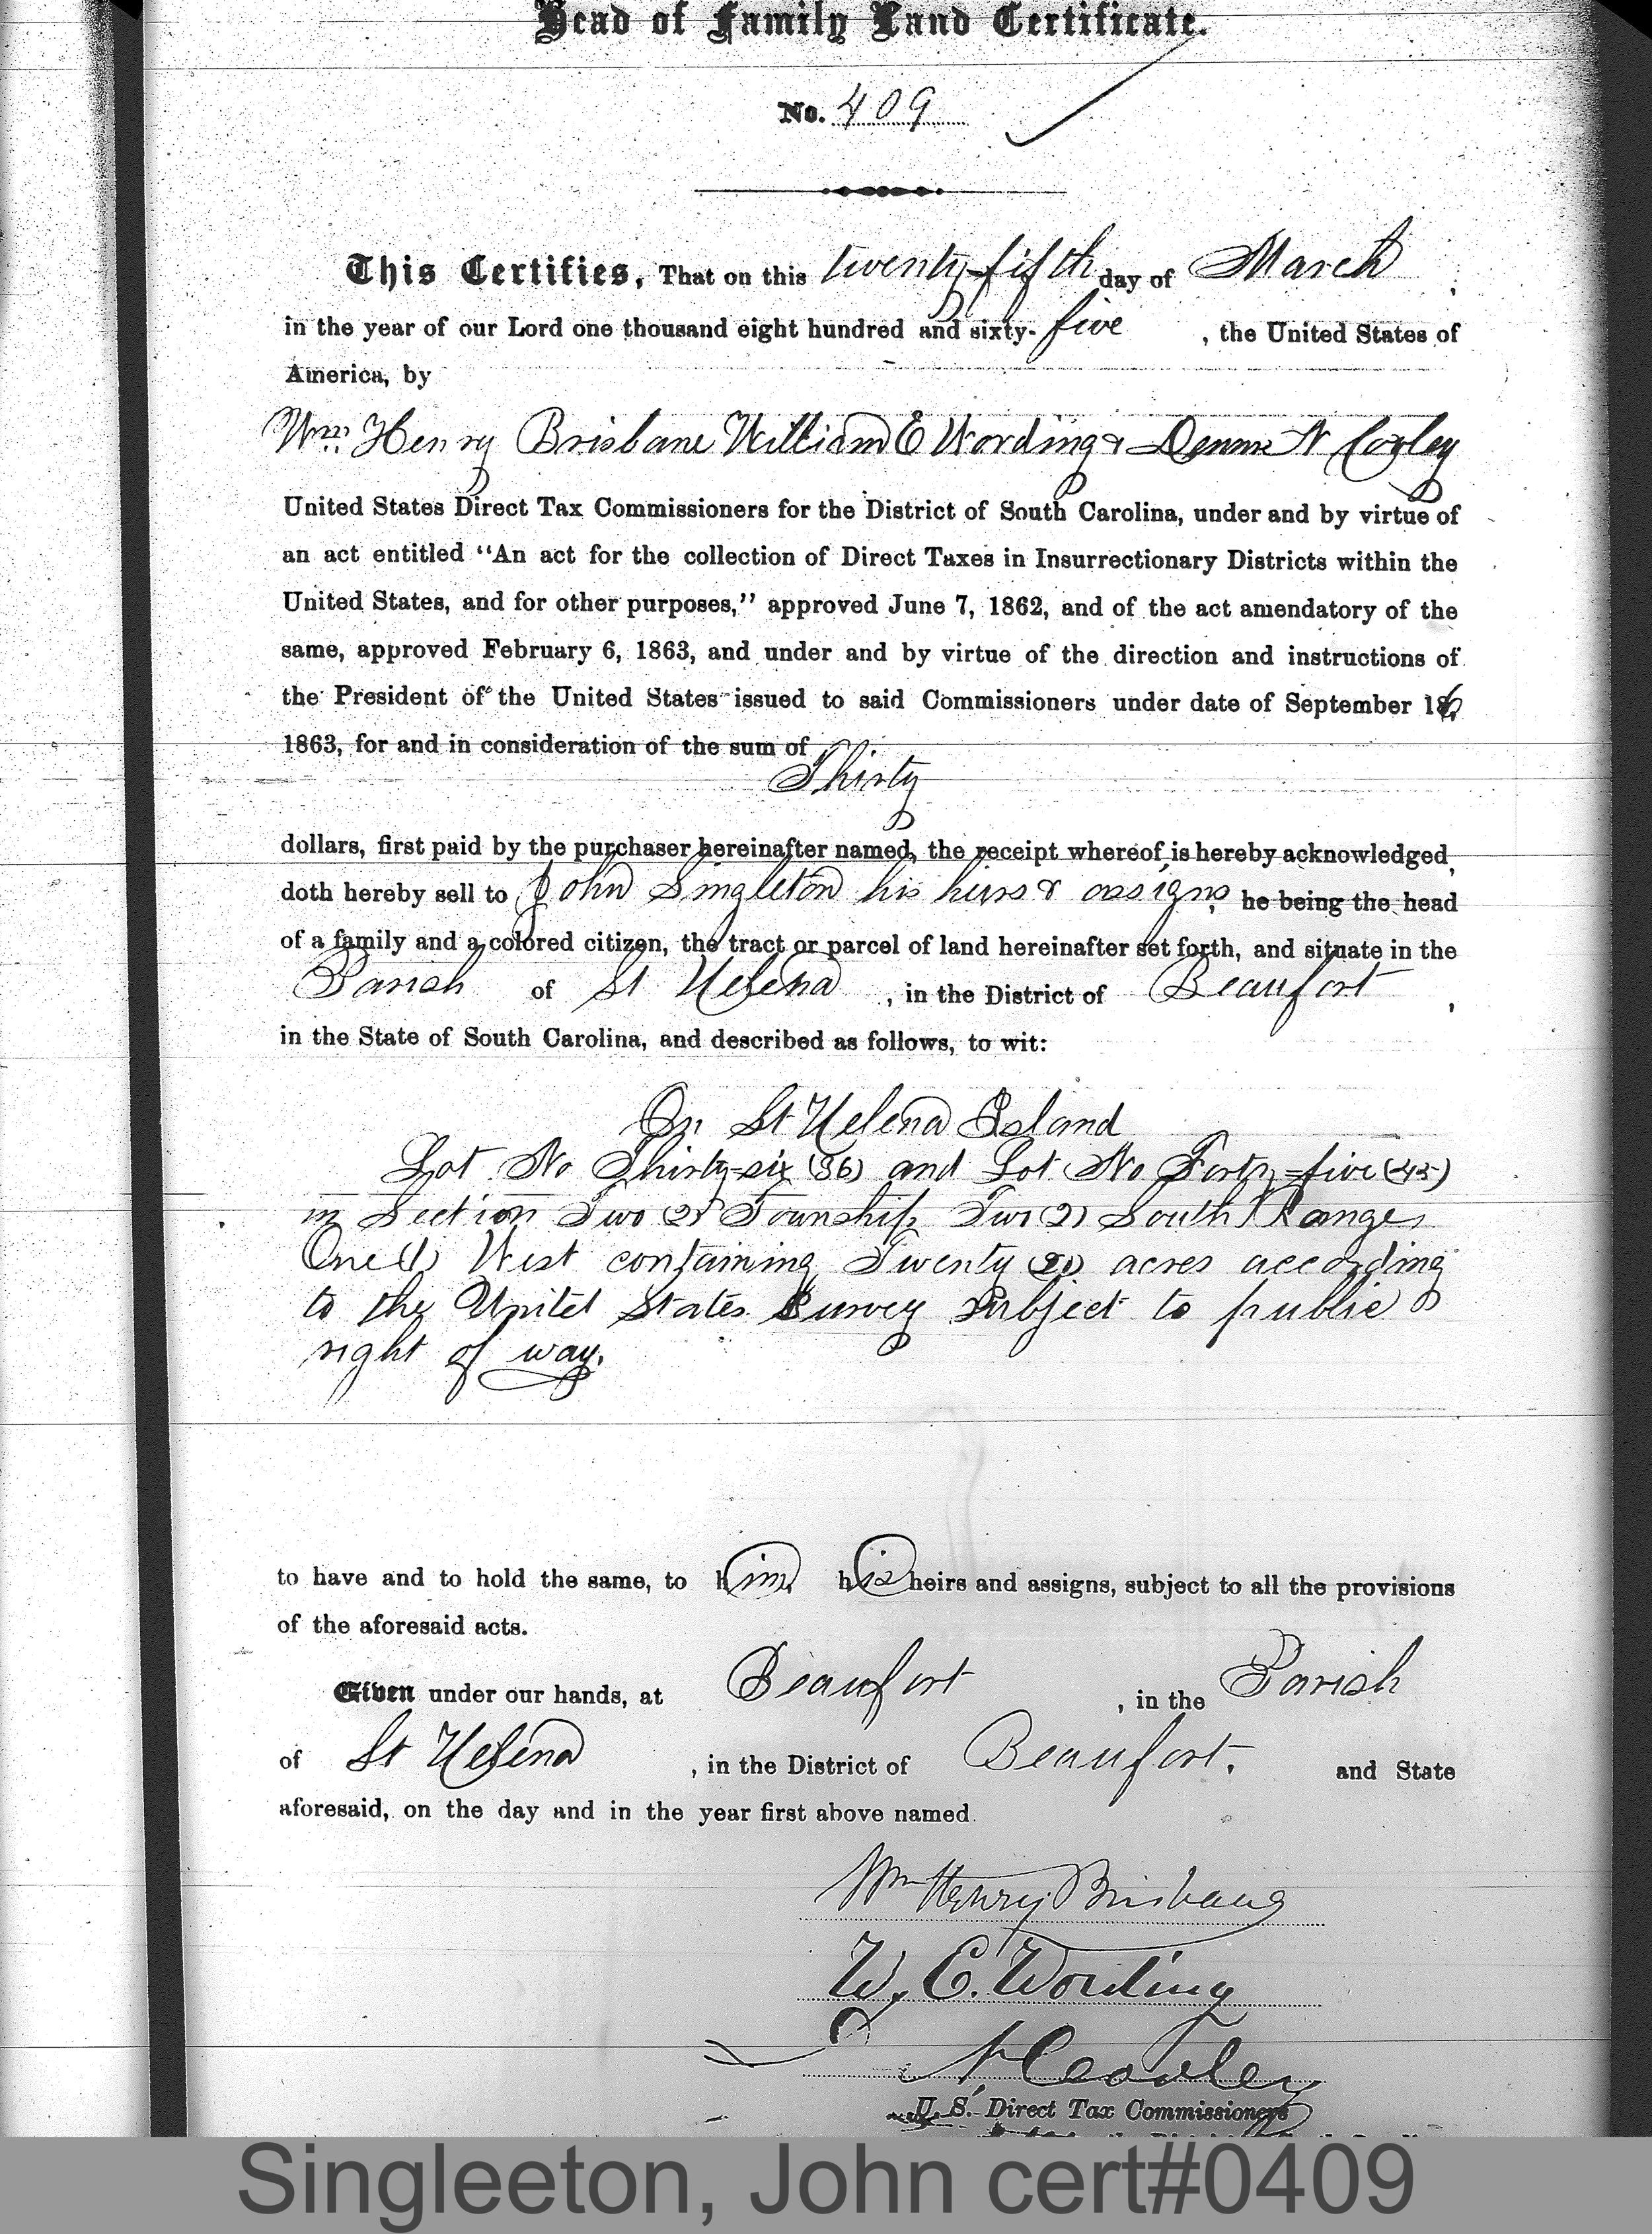 Head of Family Land Certificate.
No. 409
This Certifies, That on this twenty-fifth day of March,
in the year of our Lord one thousand eight hundred and sixty-five, the United States of
America, by
Wm. Henry Brisbane William E Wording & Dennis N Cooley
United States Direct Tax Commissioners for the District of South Carolina, under and by virtue of
an act entitled "An act for the collection of Direct Taxes in Insurrectionary Districts within the
United States, and for other purposes," approved June 7, 1862, and of the act amendatory of the
same, approved February 6, 1863, and under and by virtue of the direction and instructions of
the President of the United States issued to said Commissioners under date of September 16,
1863, for and in consideration of the sum of
Thirty
dollars, first paid by the purchaser hereinafter named, the receipt whereof is hereby acknowledged,
doth hereby sell to John Singleton his hiers & assigns, he being the head
of a family and a colored citizen, the tract or parcel of land hereinafter set forth, and situate in the
Parish of St Helena, in the District of Beaufort,
in the State of South Carolina, and described as follows, to wit:
On St Helena Island
Lot No Thirty-six (36) and Lot No Forty-five (45)
in Section Two (2) Township Two (2) South Range
One (1) West containing Twenty (20) acres according
to the United States Survey Subject to public
right of way.
to have and to hold the same, to him his heirs and assigns, subject to all the provisions
of the aforesaid acts.
Given under our hands, at Beaufort, in the Parish
of St Helena, in the District of Beaufort. and State
aforesaid, on the day and in the year first above named.
Wm Henry Brisbane
W. E. Wording
D N Cooley
U. S. Direct Tax Commissioners
Singleeton, John cert#0409